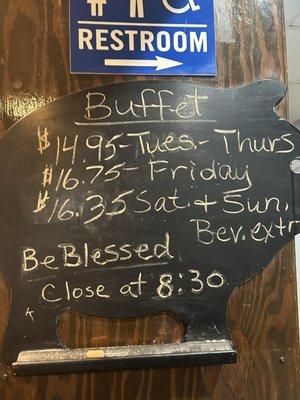 RESTROOM
Buffet
$14.95-Tues.- Thurs
$16.75- Friday
$16.35 Sat. + Sun.
Bev. extr
Be Blessed
Close at 8:30